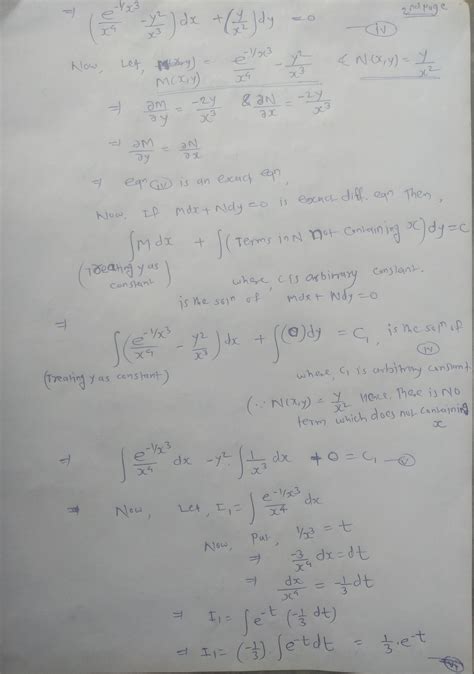 2nd page
⇒ (e^{-1/x³}/x⁴ - y²/x³) dx + (y/x²) dy = 0 — (iv)
Now, Let, M(x,y) = e^{-1/x³}/x⁴ - y²/x³ & N(x,y) = y/x²
⇒ ∂M/∂y = -2y/x³ & ∂N/∂x = -2y/x³
⇒ ∂M/∂y = ∂N/∂x
⇒ eqn (iv) is an exact eqn,
Now, If Mdx + Ndy = 0 is exact diff. eqn Then,
∫M dx + ∫(Terms in N not containing x) dy = C
(Treating y as constant)
where, C is arbitrary constant.
is the soln of Mdx + Ndy = 0
⇒ ∫(e^{-1/x³}/x⁴ - y²/x³) dx + ∫(0) dy = C₁, is the soln of (iv)
(Treating y as constant)
where, C₁ is arbitrary constant
(∵ N(x,y) = y/x² Hence There is No
term which does not containing x
⇒ ∫ e^{-1/x³}/x⁴ dx - y² ∫ 1/x³ dx + 0 = C₁ — (v)
⇒ Now, Let, I₁ = ∫ e^{-1/x³}/x⁴ dx
Now, Put, 1/x³ = t
⇒ -3/x⁴ dx = dt
⇒ dx/x⁴ = -1/3 dt
⇒ I₁ = ∫e^{-t} (-1/3 dt)
⇒ I₁ = (-1/3) ∫e^{-t} dt = 1/3 · e^{-t}